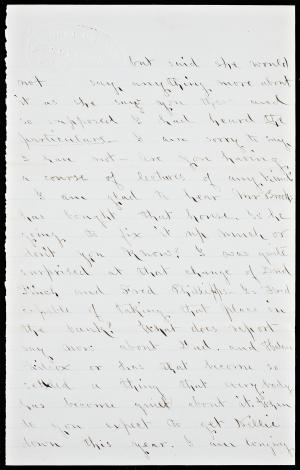 but said she would
not say anything more about
it as she say you there and
so supposed I had heard the
particulars - I am sorry to say
I have not - are you having
a course of lectures of any kind?
I am glad to hear Mr
has bought that house. Is he
going to fix it up much or
don't you know? I was quite
surprised at that change of Fred
Finch and Fred Is Fred
capable of taking that place in
the bank? What does report
say now about Fred. and Helen
or has that become so
settled a thing that every body
has become quiet about it.
do you expect to get Willie
down this year. I am longing